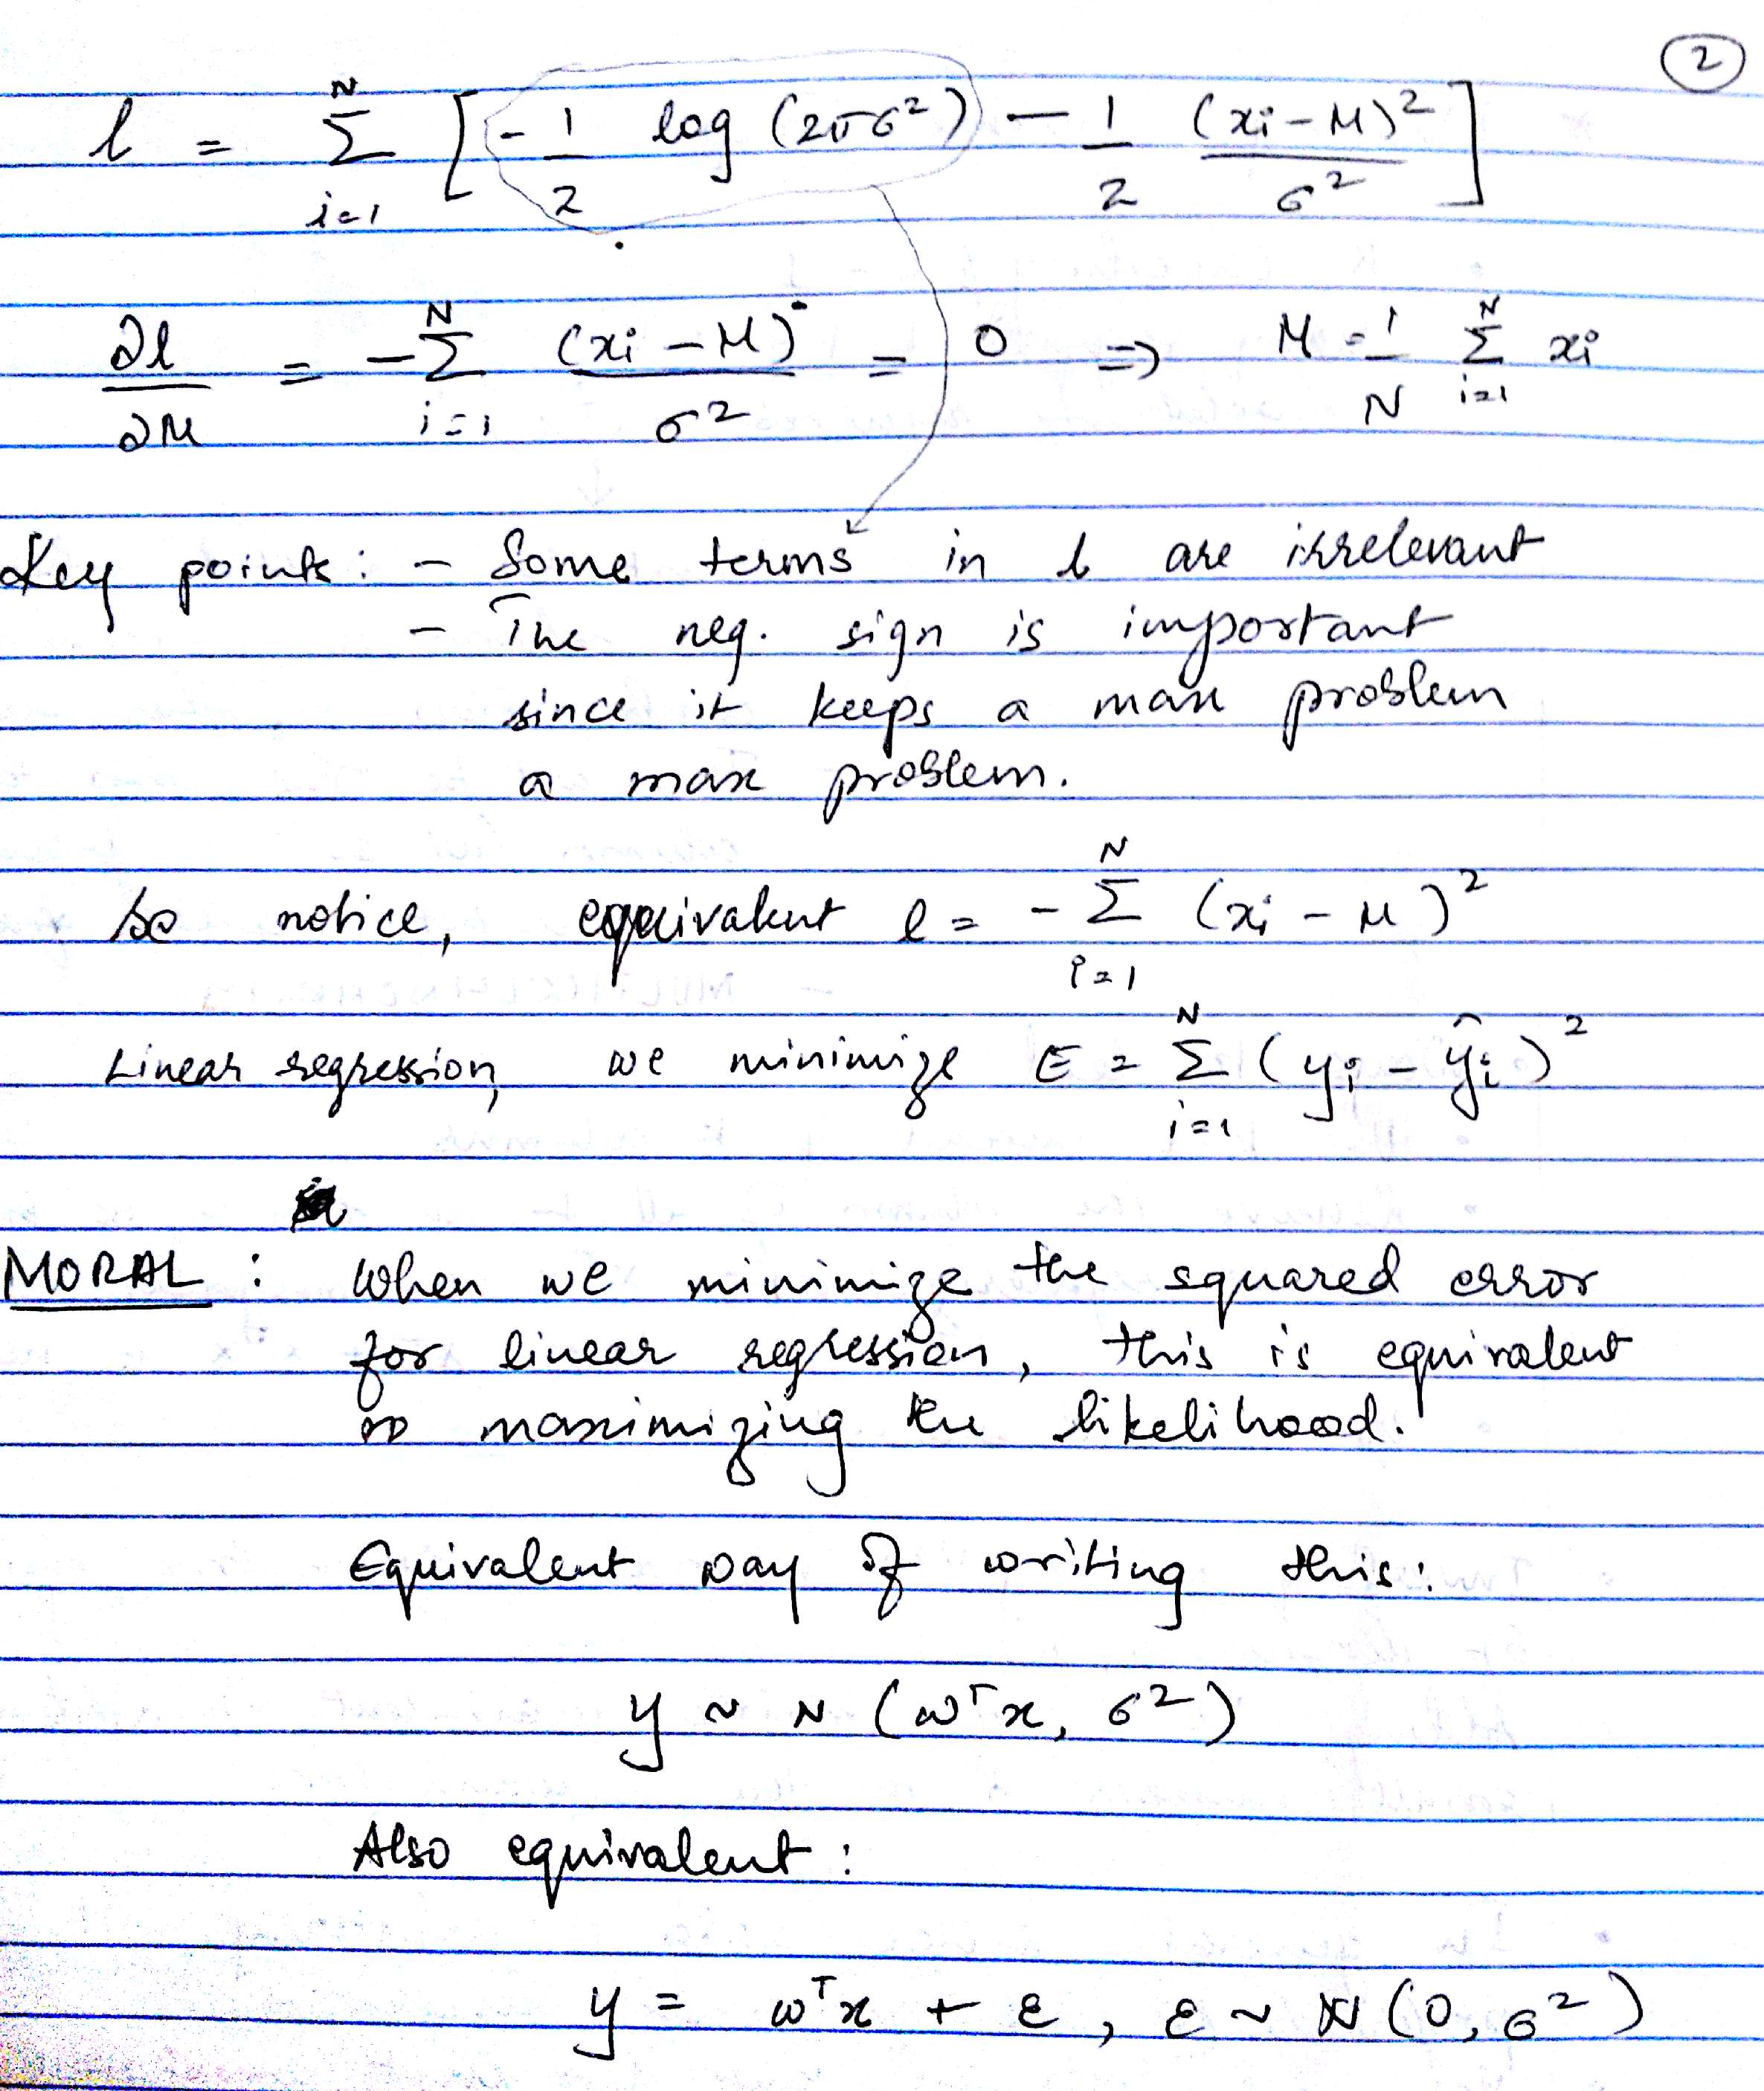 2
l = Σ_{i=1}^{N} [ -1/2 log (2πσ²) - 1/2 (xi - μ)²/σ² ]
∂l/∂μ = -Σ_{i=1}^{N} (xi - μ)/σ² = 0 => μ = 1/N Σ_{i=1}^{N} xi
Key points: - Some terms in l are irrelevant
- The neg. sign is important
since it keeps a max problem
a max problem.
So notice, equivalent l = - Σ_{i=1}^{N} (xi - μ)²
Linear regression, we minimize E = Σ_{i=1}^{N} (yi - ŷi)²
MORAL : When we minimize the squared error
for linear regression, this is equivalent
to maximizing the likelihood.
Equivalent way of writing this:
y ~ N (ωᵀx, σ²)
Also equivalent :
y = ωᵀx + ε, ε ~ N(0, σ²)